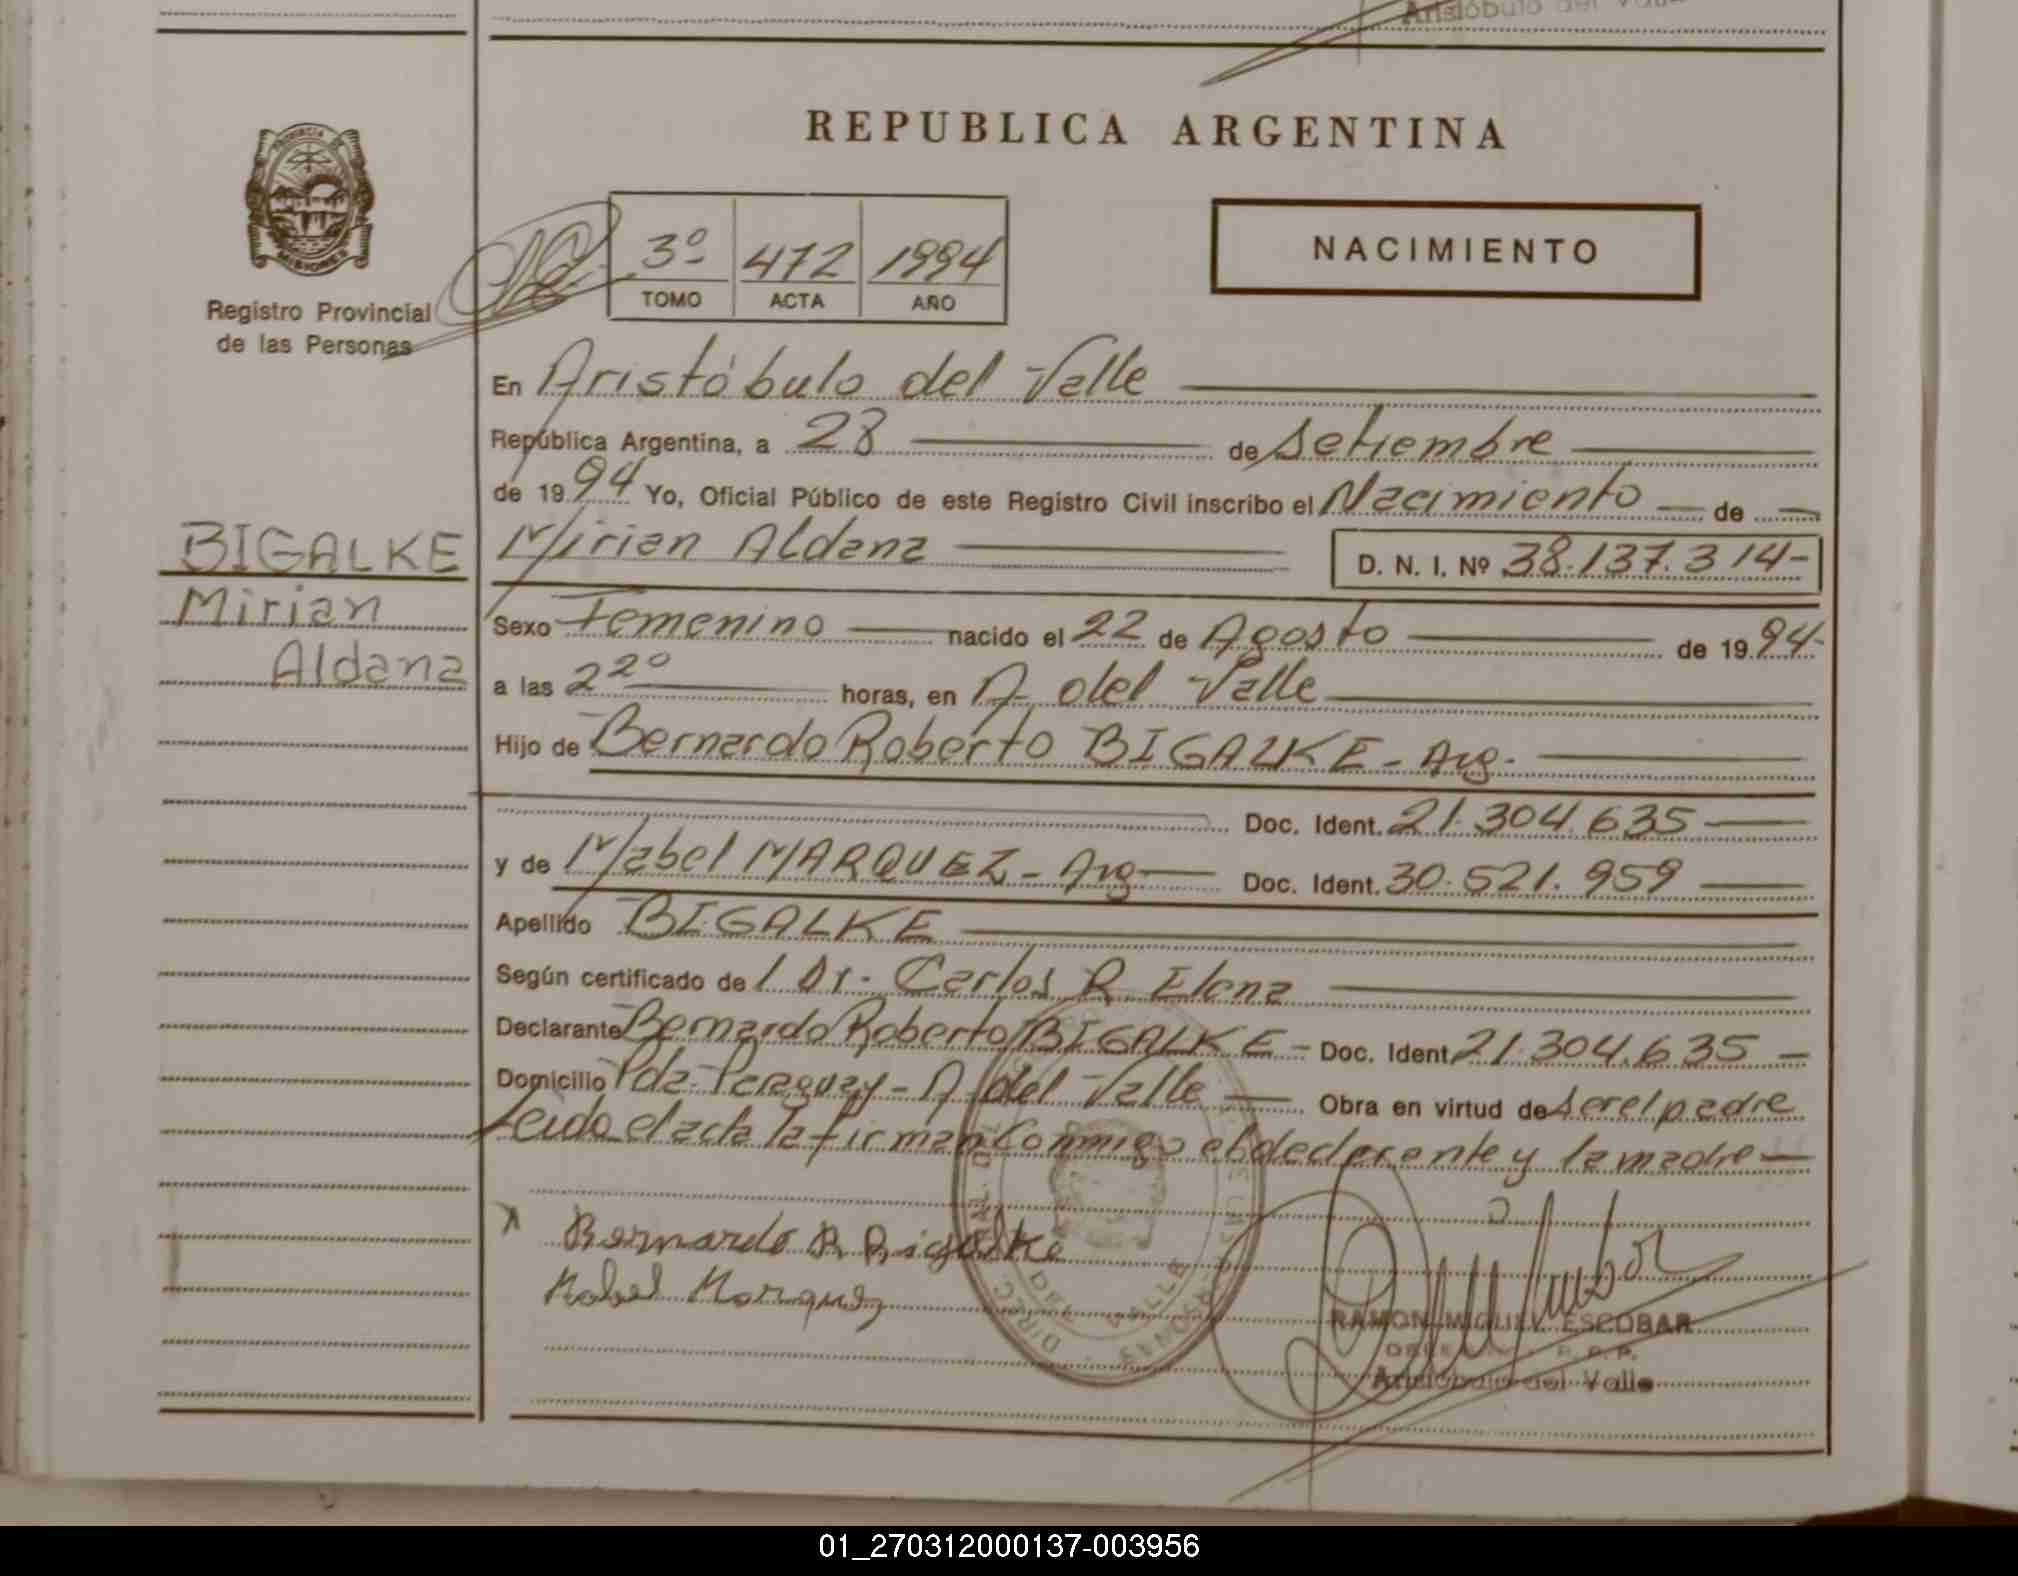 Aristóbulo del Valle
REPUBLICA ARGENTINA
PROVINCIA DE
MISIONES
Registro Provincial
de las Personas
3º 472 1994
TOMO ACTA AÑO
NACIMIENTO
En Aristóbulo del Valle
República Argentina, a 28 de Setiembre
de 1994 Yo, Oficial Público de este Registro Civil inscribo el Nacimiento de
BIGALKE
Mirian
Aldana
Mirian Aldana D. N. I. Nº 38.137.314-
Sexo Femenino nacido el 22 de Agosto de 1994-
a las 22º horas, en A. del Valle
Hijo de Bernardo Roberto BIGALKE - Arg.
Doc. Ident. 21.304.635
y de Mabel MARQUEZ - Arg Doc. Ident. 30.521.959
Apellido BIGALKE
Según certificado de l Dr. Carlos R. Elena
Declarante Bernardo Roberto BIGALKE - Doc. Ident. 21.304.635
Domicilio Pda. Paraguay - A. del Valle Obra en virtud de ser el padre
Leido el acta la firman conmigo el declarente y la madre
x Bernardo R Bigalke
Mabel Marquez
DEL VALLE
RAMON MIGUEL ESCOBAR
R. P. P.
Aristóbulo del Valle
01_270312000137-003956